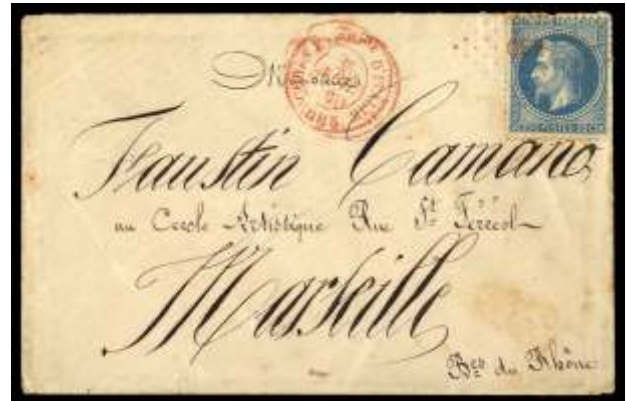 Monsieur
Faustin Camano
au Cercle Artistique Rue St Ferreol
Marseille
Bes du Rhône